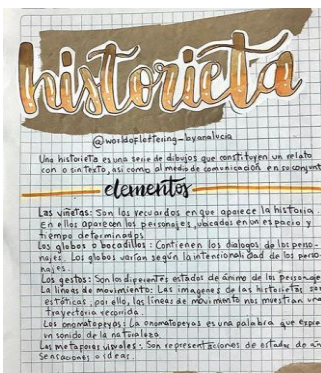 historieta
@worldoflettering_byanalucia
Una historieta es una serie de dibujos que constituyen un relato
con o sin texto, así como al medio de comunicación en su conjunt
elementos
Las viñetas: Son los recuardos en que aparece la historia.
En ellos aparecen los personajes, ubicados en un espacio y
tiempo determinado.
Los globos o bocadillos: Contienen los dialogos de los perso-
najes. Los globos varían según la intencionalidad de los perso-
najes.
Los gestos: Son los diferentes estados de ánimo de los personaje
La líneas de movimiento: Las imagenes de las historietas son
estáticas, por ello, las líneas de movimiento nos muestran una
trayectoria recorrida.
Las onomatopeyas: La onomatopeyas es una palabra que expre
un sonido de la naturaleza.
Las metaforas visuales: Son representaciones de estados de án
sensaciones o ideas.